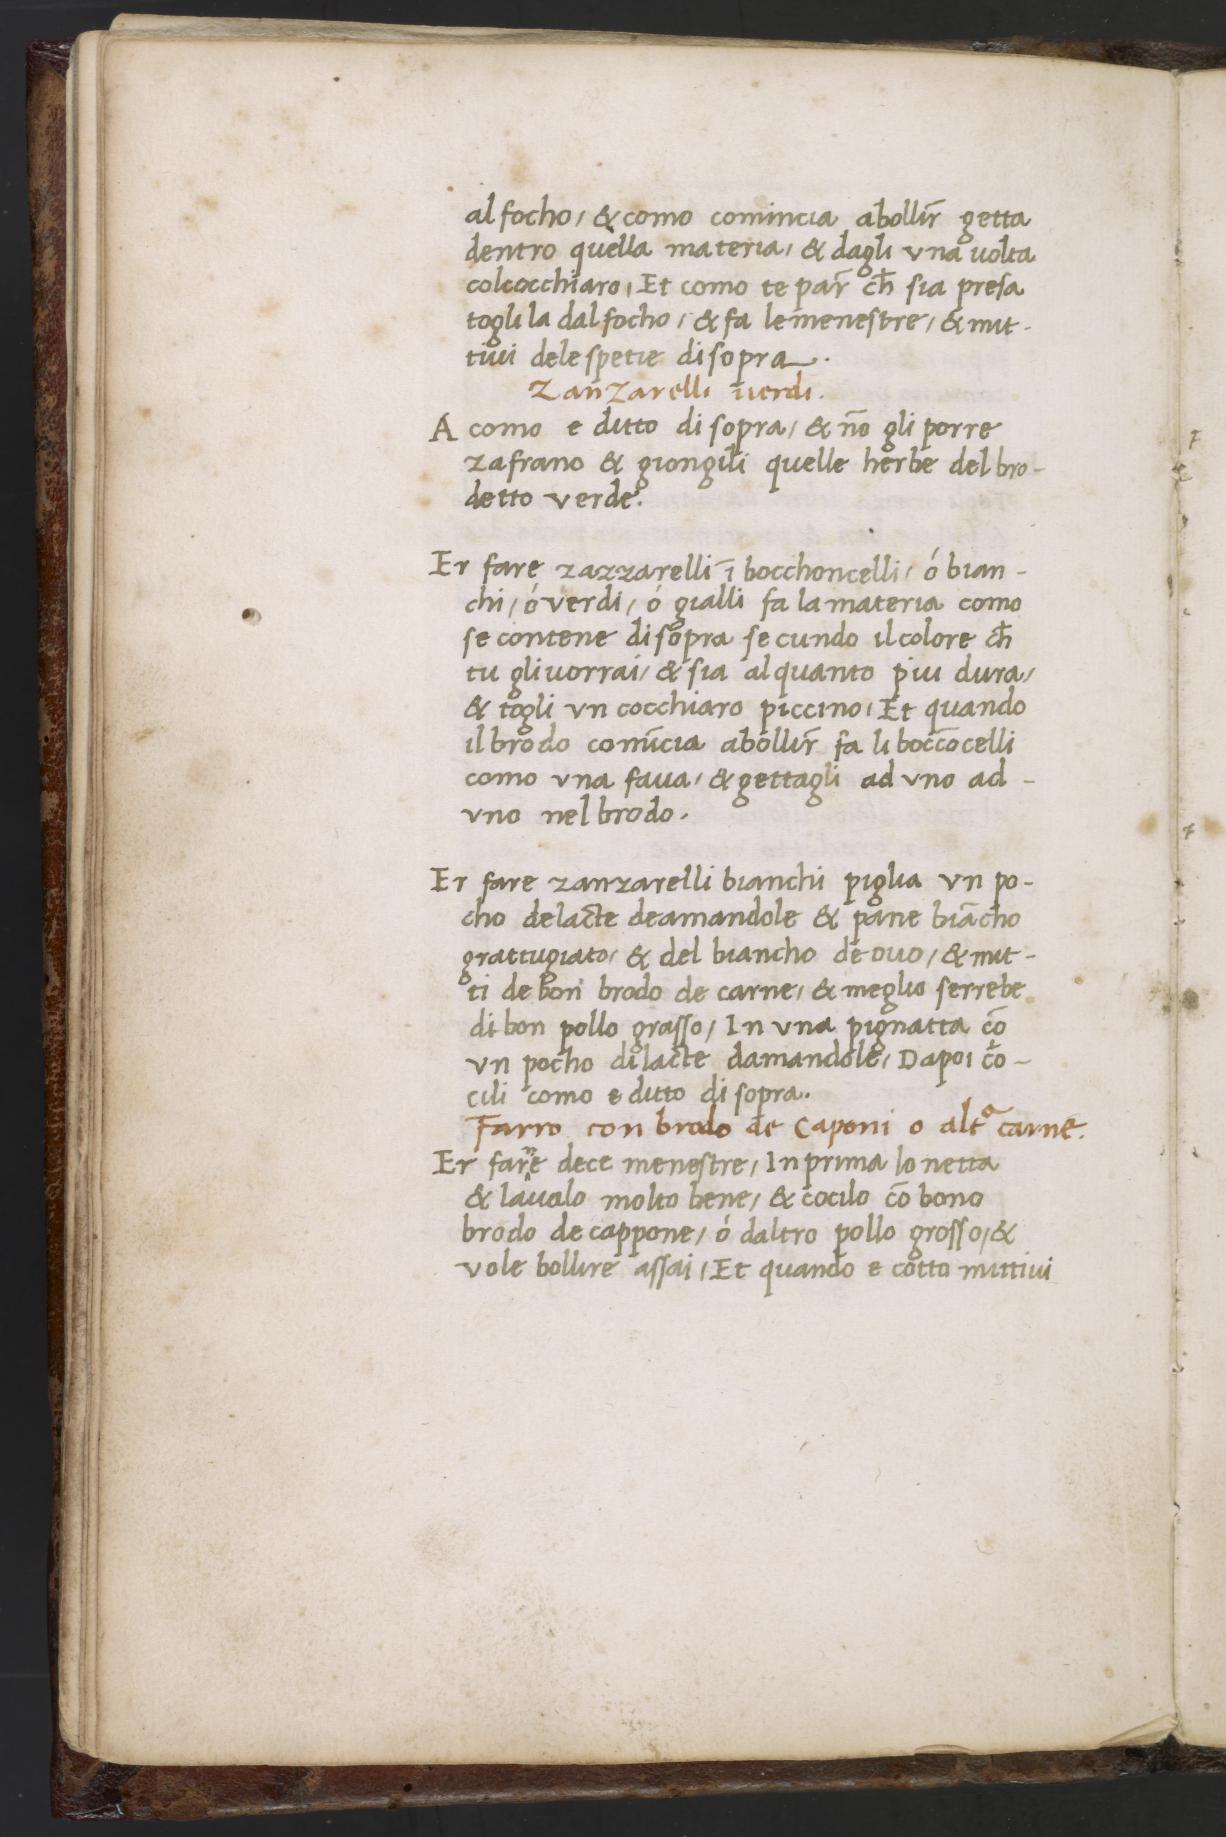 al focho, & como comincia abollir̄ getta
dentro quella materia, & dagli vna uolta
colcocchiaro, Et como te par̄ ch̄ sia presa
togli la dal focho, & fa le menestre, & mit-
tiui dele spetie di sopra.
Zanzarelli uerdi.
A como e ditto di sopra, & nō gli porre
zafrano & giongili quelle herbe del bro-
detto verde.
Er fare zazzarelli ī bocchoncelli, ó bian-
chi, ó verdi, ó gialli fa la materia como
se contene di sopra secundo il colore ch̄
tu gli uorrai, & sia alquanto piu dura,
& togli vn cocchiaro piccino, Et quando
il brodo comīcia abollir̄ fa li boccōcelli
como vna faua, & gettagli ad vno ad-
vno nel brodo.
Er fare zanzarelli bianchi piglia vn po-
cho delacte deamandole & pane biācho
grattugiato, & del biancho de ouo, & mit-
ti de bon brodo de carne, & meglio serrebe
di bon pollo grasso, In vna pignatta cō
vn pocho di lacte damandole, Dapoi co-
cili como e ditto di sopra.
Farro con brodo de Caponi o altª carne.
Er farne dece menestre, In prima lo netta
& lauolo molto bene, & cocilo cō bono
brodo de cappone, ó daltro pollo grosso, &
vole bollire assai, Et quando e cotto mittiui